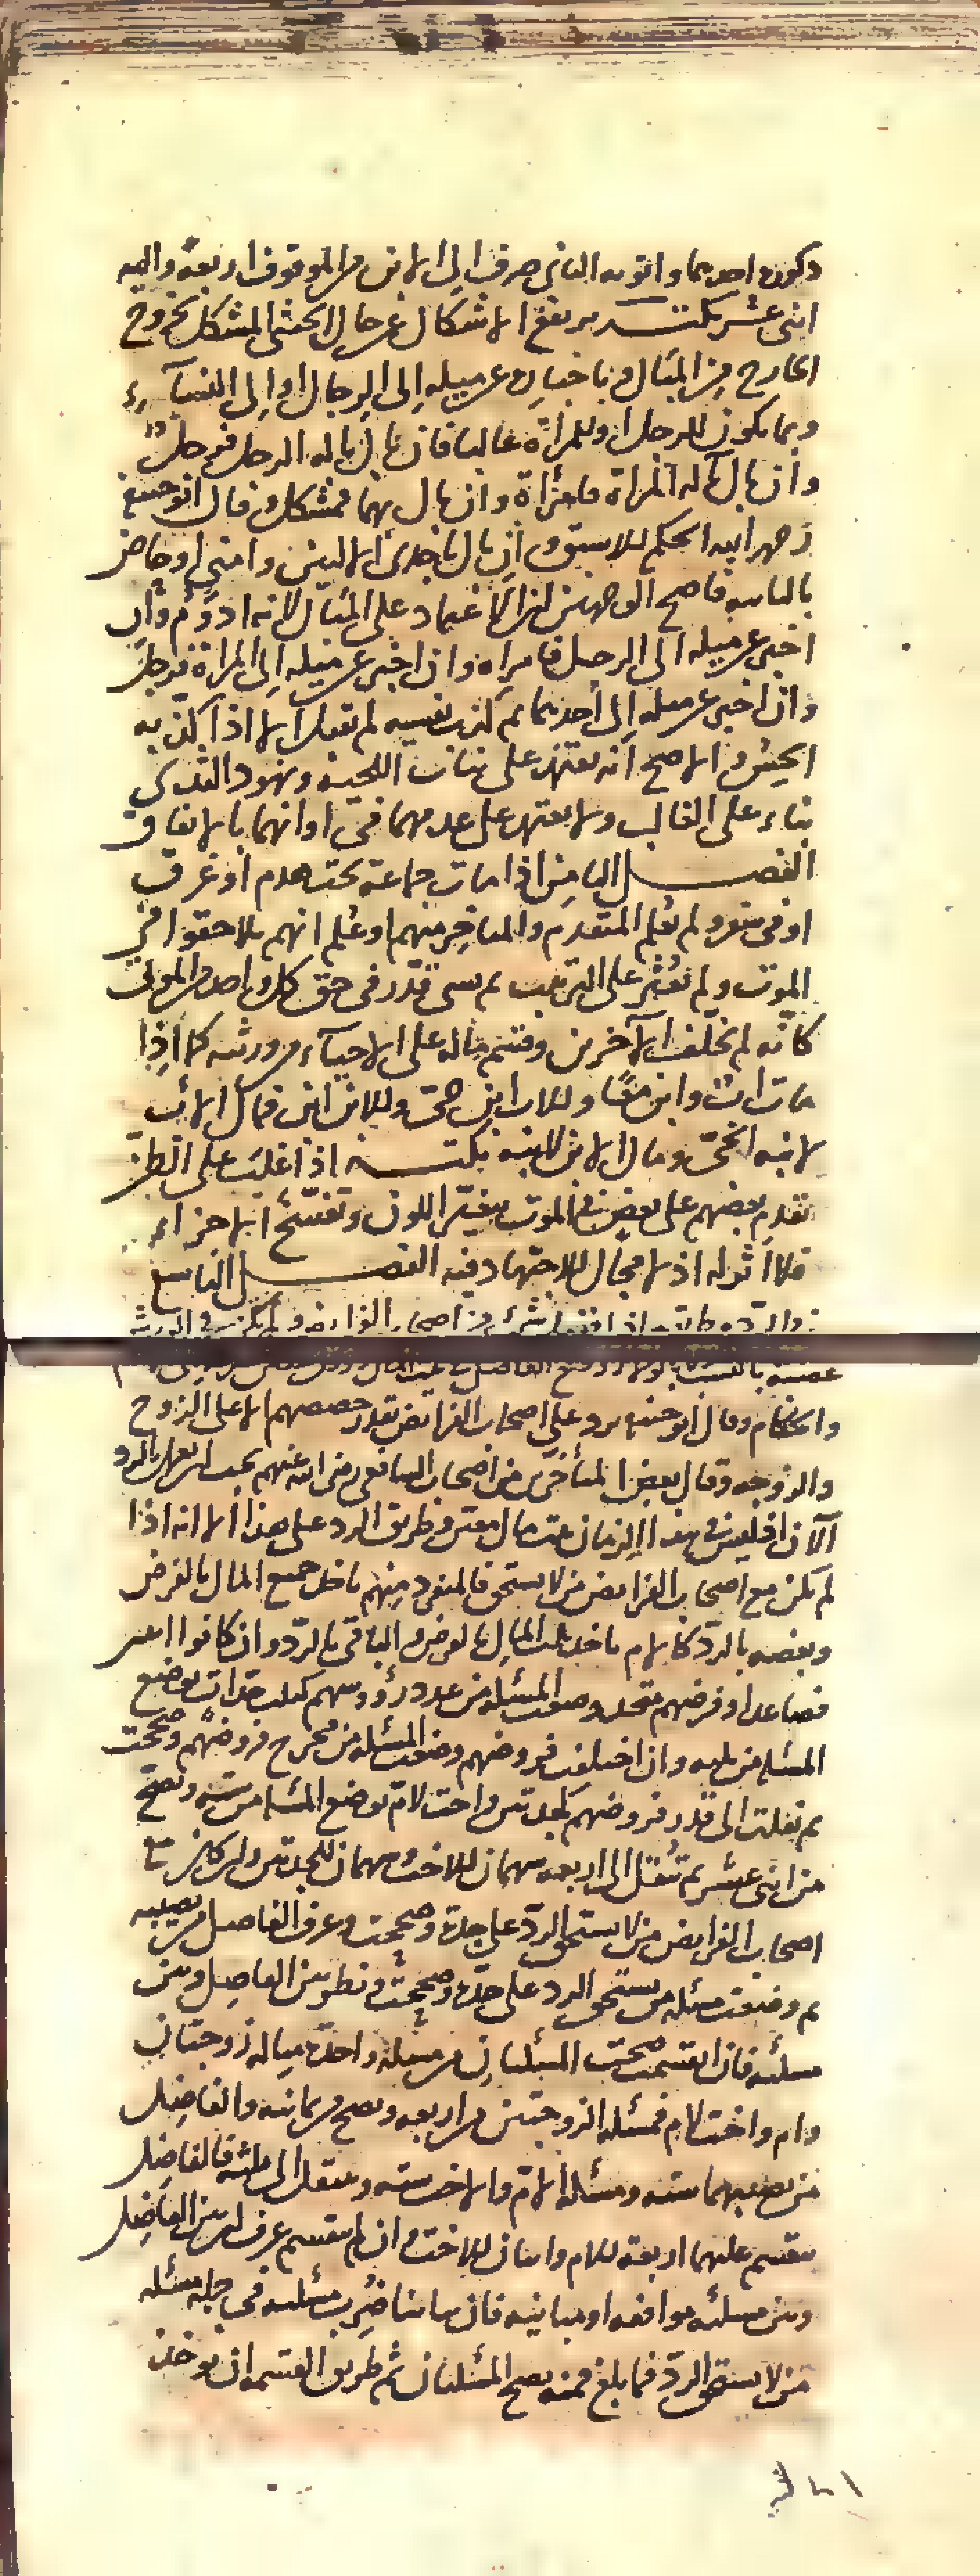 ذكورة احدهما وانوثة الثاني صرف الى الابن من الموقوف اربعة واليه
اثنى عشر نكتة يرتفع الاشكال عن حال الخنثى المشكل بخروج
الخارج من المبال وباخباره عن ميله الى الرجال او الى النساء
وبما يكون للرجل او للمراة غالبا فان بال بالة الرجل فرجل
وان بال بالة المراة فامراة وان بال بهما فمشكل وقال ابو حنيفة
رحمه الله الحكم للاسبق وان بال باحدى الاليتين وامنى او حاض
بالثانية فاصح الوجهين ان الاعتماد على المبال لانه ادوم وان
اخبر عن ميله الى الرجل فامراة وان اخبر عن ميله الى المراة فرجل
وان اخبر عن ميله الى احدهما ثم كذب نفسه لم تقبل الا اذا كذبه
الحس والاصح انه يعتمد على نبات اللحية ونهود الثدى
بناء على الغالب ولا يعتمد على عدمهما فى اوانهما بالاتفاق
الفصل الثامن اذا مات جماعة تحت هدم او غرق
او فى سفر ولم يعلم المتقدم والمتاخر منهم او علم انهم تلاحقوا فى
الموت ولم يعثر على الترتيب ثم نسى قدر فى حق كل واحد من الموتى
كانه لم يخلف الآخرين وقسم ماله على الاحياء من ورثته كما اذا
مات اب وابن معا وللاب ابن حى وللابن ابن فمال الاب
لابنه الحى ومال الابن لابنه نكتة اذا غلب على الظن
تقدم بعضهم على بعض فى الموت بتغير اللون وتفسخ الاجزاء
فلا اثر له اذ لا مجال للاجتهاد فيه الفصل التاسع
والاحكام وقال ابو حنيفة يرد على اصحاب الفرائض بقدر حصصهم الا على الزوج
والزوجة وقال بعض المتأخرين من اصحاب الشافعى رضى الله عنهم يجب الرد
الآن اذ ليس فى هذا الزمان بيت مال معتبر وطريق الرد على هذا انه اذا
لم يكن مع اصحاب الفرايض من لا يستحق فالمنفرد منهم ياخذ جميع المال بالفرض
وبعضه بالرد كالام تاخذ ثلث المال بالفرض والباقى بالرد وان كانوا اثنين
فصاعدا وفرضهم متحد وضعت المسئلة من عدد رؤوسهم كثلث جدات توضع
المسئلة من ثلثة وان اختلفت فروضهم وضعت المسئلة من مخرج فروضهم وصححت
ثم نقلت الى قدر فروضهم كجدتين واخت لام توضع المسئلة من ستة وتصح
من اثنى عشر ثم تنقل الى اربعة سهمان للاخت وسهمان للجدتين وان كان مع
اصحاب الفرايض من لا يستحق الرد على حدة وصححت وعرف الفاضل من نصيبه
ثم وضعت مسئلة من يستحق الرد على حدة وصححت ونظر بين الفاضل وبين
مسئلته فان انقسمت صحت المسئلتان من مسئلة واحدة مثاله زوجتان
وام واخت لام فمسئلة الزوجتين من اربعة وتصح من ثمانية والفاضل
من نصيبهما ستة ومسئلة الام والاخت ستة وتنتقل الى ثلثة فالفاضل
ينقسم عليهما اربعة للام واثنان للاخت وان لم ينقسم عرف ان بين الفاضل
وبين مسئلته موافقة او مباينة فان تباينا ضربت مسئلته فى جملة مسئلة
من لا يستحق الرد فما بلغ فمنه تصح المسئلتان ثم طريق القسمة ان يوخذ